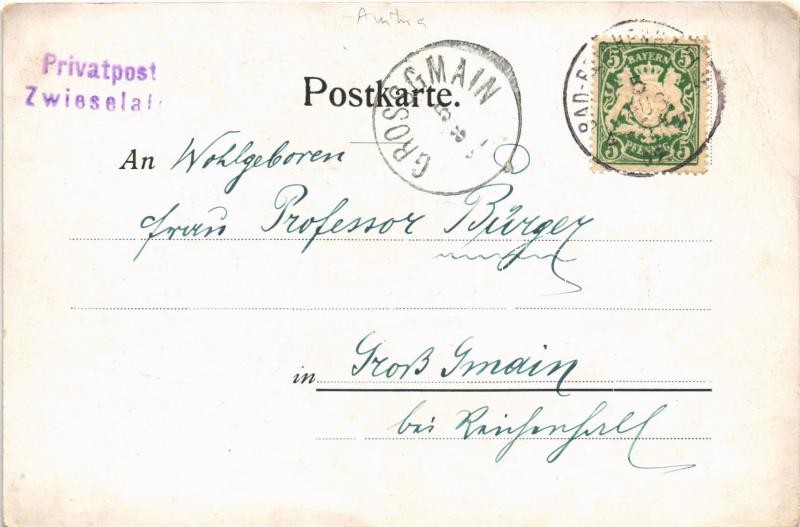 Austria
Privatpost
Zwieselal
Postkarte.
GROSSGMAIN
BAD-
5 BAYERN 5
5 PFENNIG 5
An Wohlgeboren
Frau Professor Bürger
in Groß Gmain
bei Reichenhall